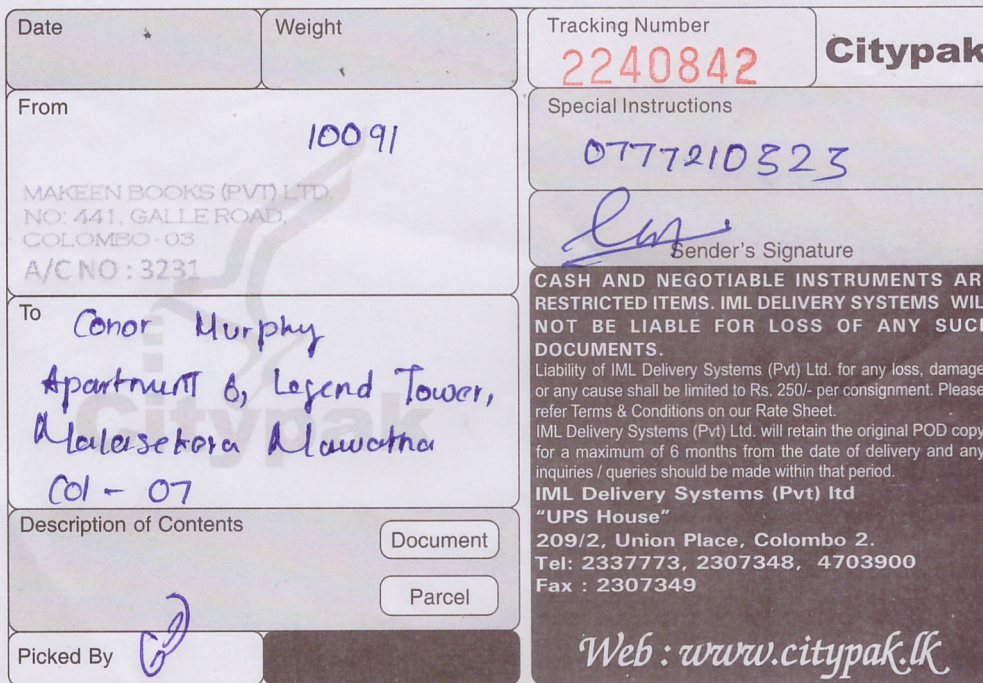 Date
Weight
From
10091
MAKEEN BOOKS (PVT) LTD.
NO: 441, GALLE ROAD,
COLOMBO - 03
A/C NO : 3231
To
Conor Murphy
Apartment 6, Legend Tower,
Malasekera Mawatha
Col - 07
Citypak
Description of Contents
Document
Parcel
Picked By
Tracking Number
2240842
Citypak
Special Instructions
0777210323
Sender's Signature
CASH AND NEGOTIABLE INSTRUMENTS AR
RESTRICTED ITEMS. IML DELIVERY SYSTEMS WIL
NOT BE LIABLE FOR LOSS OF ANY SUC
DOCUMENTS.
Liability of IML Delivery Systems (Pvt) Ltd. for any loss, damage
or any cause shall be limited to Rs. 250/- per consignment. Please
refer Terms & Conditions on our Rate Sheet.
IML Delivery Systems (Pvt) Ltd. will retain the original POD copy
for a maximum of 6 months from the date of delivery and any
inquiries / queries should be made within that period.
IML Delivery Systems (Pvt) ltd
"UPS House"
209/2, Union Place, Colombo 2.
Tel: 2337773, 2307348, 4703900
Fax : 2307349
Web : www.citypak.lk